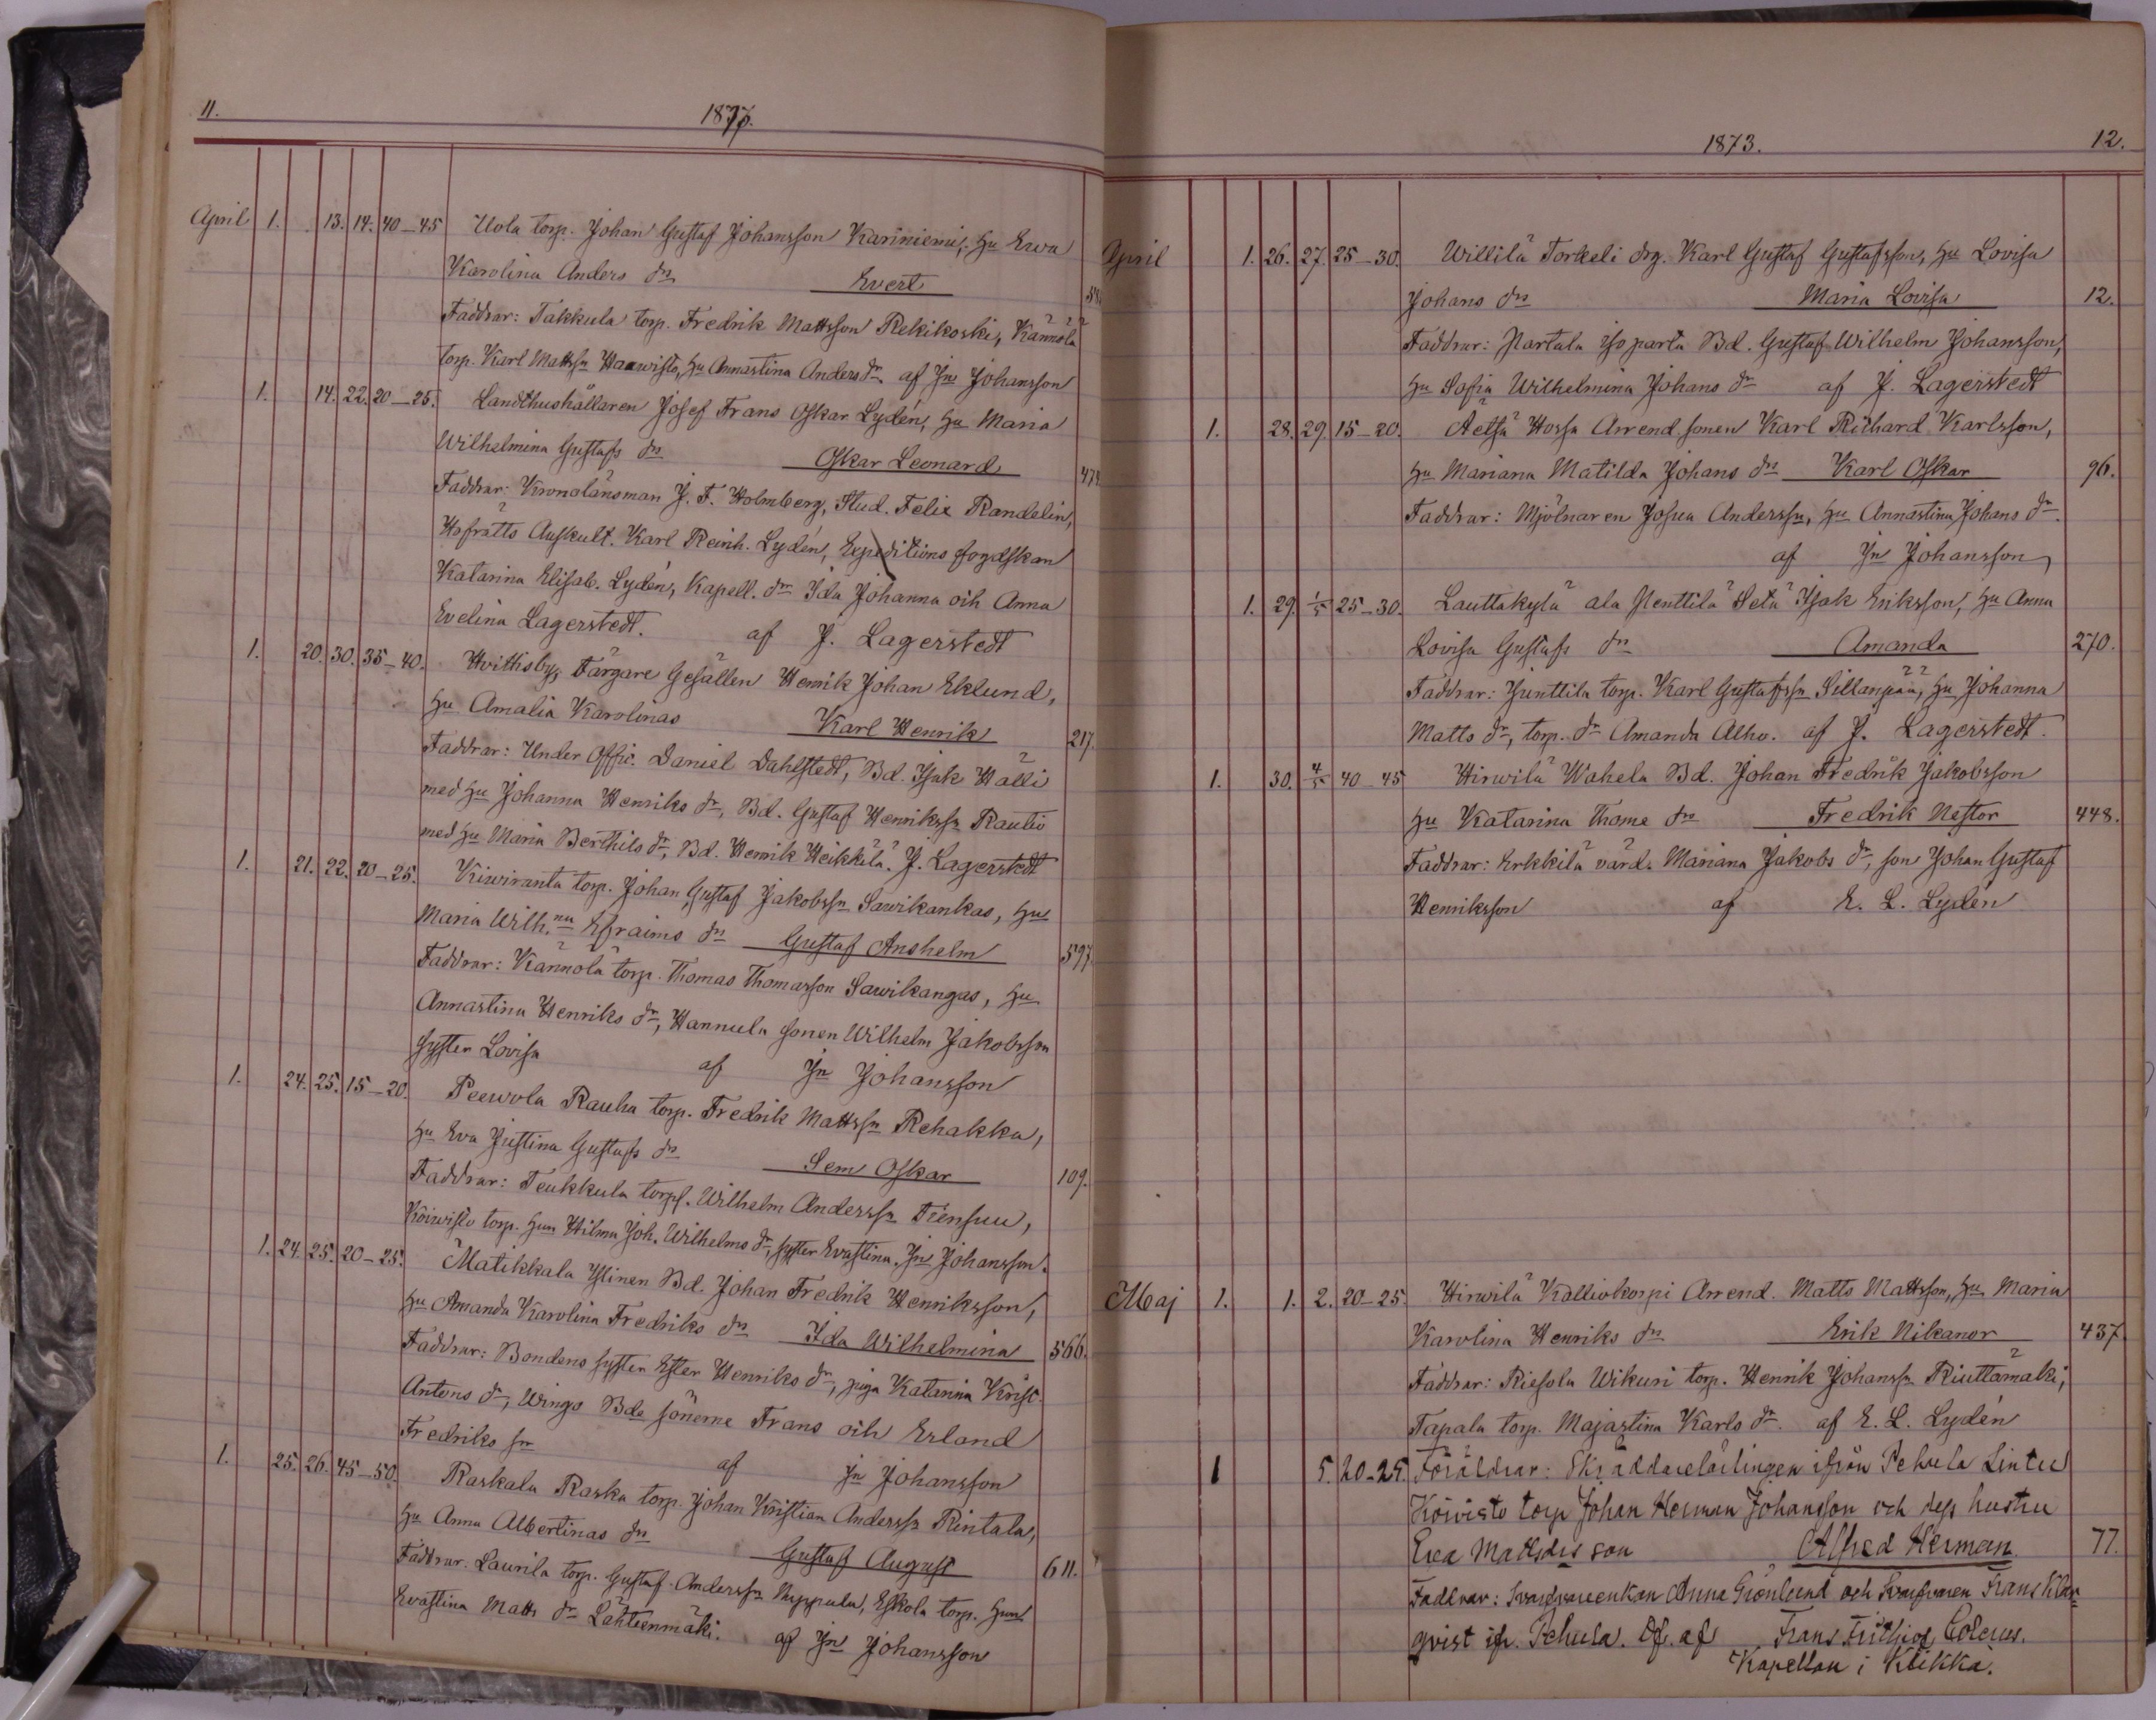 11.
1873.
April 1. 13. 14. 40–45 Uola torp. Johan Gustaf Johansson Kariniemi, Hu Ewa
Karolina Anders dr Evert 58.
Faddrar: Takkula torp. Fredrik Mattsson Rekikoski, Kännölä
torp. Karl Mattssn Haawisto, Hu Annastina Anders dr af Jn Johansson
1. 14. 22. 20–25. Landthushållaren Josef Frans Oskar Lydén, Hu Maria
Wilhelmina Gustafs dr Oskar Leonard 474
Faddrar: Kronolänsman J. F. Holmberg, Stud. Felix Randelin,
Hofrätts Auskult. Karl Reinh. Lydén, Expeditions fogdskan
Katarina Elisab. Lydén, Kapell. dr Ida Johanna och Anna
Evelina Lagerstedt. af J. Lagerstedt
1. 20. 30. 35–40. Hvittisby Färgare Gesällen Henrik Johan Eklund,
Hu Amalia Karolinas Karl Henrik 217.
Faddrar: Under Offic. Daniel Dahlstedt, Bd. Isak Hälli
med Hu Johanna Henriks dr, Bd. Gustaf Henrikssn Rautio
med Hu Maria Berthils dr, Bd. Henrik Heikkilä. J. Lagerstedt
1. 21. 22. 20–25. Kiwiranta torp. Johan Gustaf Jakobssn Sawikankas, Hu
Maria Wilh.na Efraims dr Gustaf Anshelm 597.
Faddrar: Kännölä torp. Thomas Thomasson Sawikangas, Hu
Annastina Henriks dr, Hannula sonen Wilhelm Jakobsson
syster Lovisa af Jn Johansson
1. 24. 25. 15–20. Peewola Rauha torp. Fredrik Mattssn Rehakka,
Hu Eva Justina Gustafs dr Sem Oskar 109.
Faddrar: Teukkula torp. Wilhelm Anderssn Tiensuu,
Koiwisto torp. Hun Hilma Joh. Wilhelms dr, syster Evastina. Jn Johansson.
1. 24. 25. 20–25. Matikkala Ylinen Bd. Johan Fredrik Henriksson,
Hu Amanda Karolina Fredriks dr Ida Wilhelmina 566.
Faddrar: Bondens syster Ester Henriks dr, piga Katarina Krist.
Antons dr, Wingo Bds sönerne Frans och Erland
Fredriks sn af Jn Johansson
1. 25. 26. 45–50. Raskala Raska torp. Johan Kristian Anderssn Rintala,
Hu Anna Albertinas dr Gustaf August 611.
Faddrar. Laurila torp. Gustaf Anderssn Nuppula, Eskola torp. Hun
Evastina Matts dr Lähteenmäki. af Jn Johansson
1873.
12.
April 1. 26. 27. 25–30. Willilä Torkeli drg. Karl Gustaf Gustafsson, Hu Lovisa
Johans dr Maria Lovisa 12.
Faddrar: Partala iso parta Bd. Gustaf Wilhelm Johansson,
Hu Sofia Wilhelmina Johans dr af J. Lagerstedt
1. 28. 29. 15–20. Aetsä Hossa Arrend sonen Karl Richard Karlsson,
Hu Mariana Matilda Johans dr Karl Oskar 96.
Faddrar: Mjölnaren Josua Anderssn, Hu Annastina Johans dr.
af Jn Johansson
1. 29. 1/5 25–30. Lauttakylä ala Penttilä Setä Isak Eriksson, Hu Anna
Lovisa Gustafs dr Amanda 270.
Faddrar: Junttila torp. Karl Gustafssn Sillanpää, Hu Johanna
Matts dr, torp. dr Amanda Alho. af J. Lagerstedt.
1. 30. 4/5 40–45 Hirwilä Wahela Bd. Johan Fredrik Jakobsson
Hu Katarina Thome dr Fredrik Nestor 448.
Faddrar: Erkkilä värd. Mariana Jakobs dr, son Johan Gustaf
Henriksson af E. L. Lydén
Maj 1. 1. 2. 20–25. Hirwilä Kalliokorpi Arrend. Matts Mattsson, Hu Maria
Karolina Henriks dr Erik Nikanor 437
Faddrar: Riesola Wikuri torp. Henrik Johanssn Riuttamäki,
Tapala torp. Majastina Karls dr. af E. L. Lydén
1 5. 20–25. Föräldrar: Skräddarelärlingen ifrån Pehula Lintu
Koivisto torp Johan Herman Johansson och dess hustru
Eva Mattsdrs son Alfred Herman 77.
Faddrar: Svarfvareenkan Anna Grönlund och Svarfvaren Frans Klar
qvist ifr. Pehula. Df. af Frans Frithiof Colerus.
Kapellan i Kiikka.